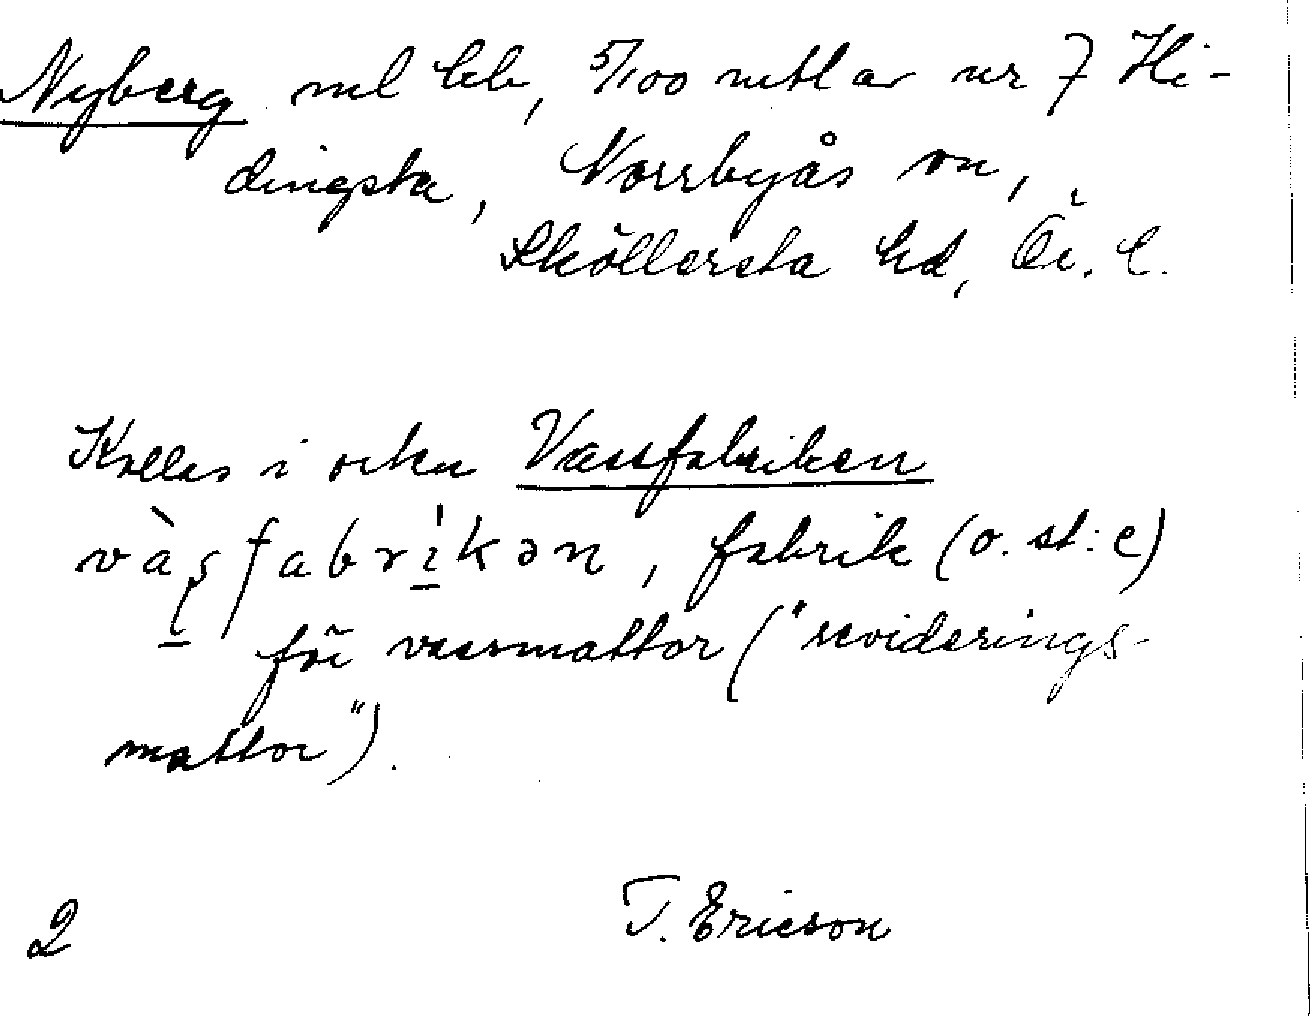 Nyberg nul beb, 5/100 mtl av nr 7 Hi-
dingsta, Norrbyås sn,
Sköllersta hd, Ör. l.
Kallas i orten Vassfabriken
vàsfabrikən, fabrik (o. st:e)
för vassmattor ("revideringsmattor").
T. Ericson
2